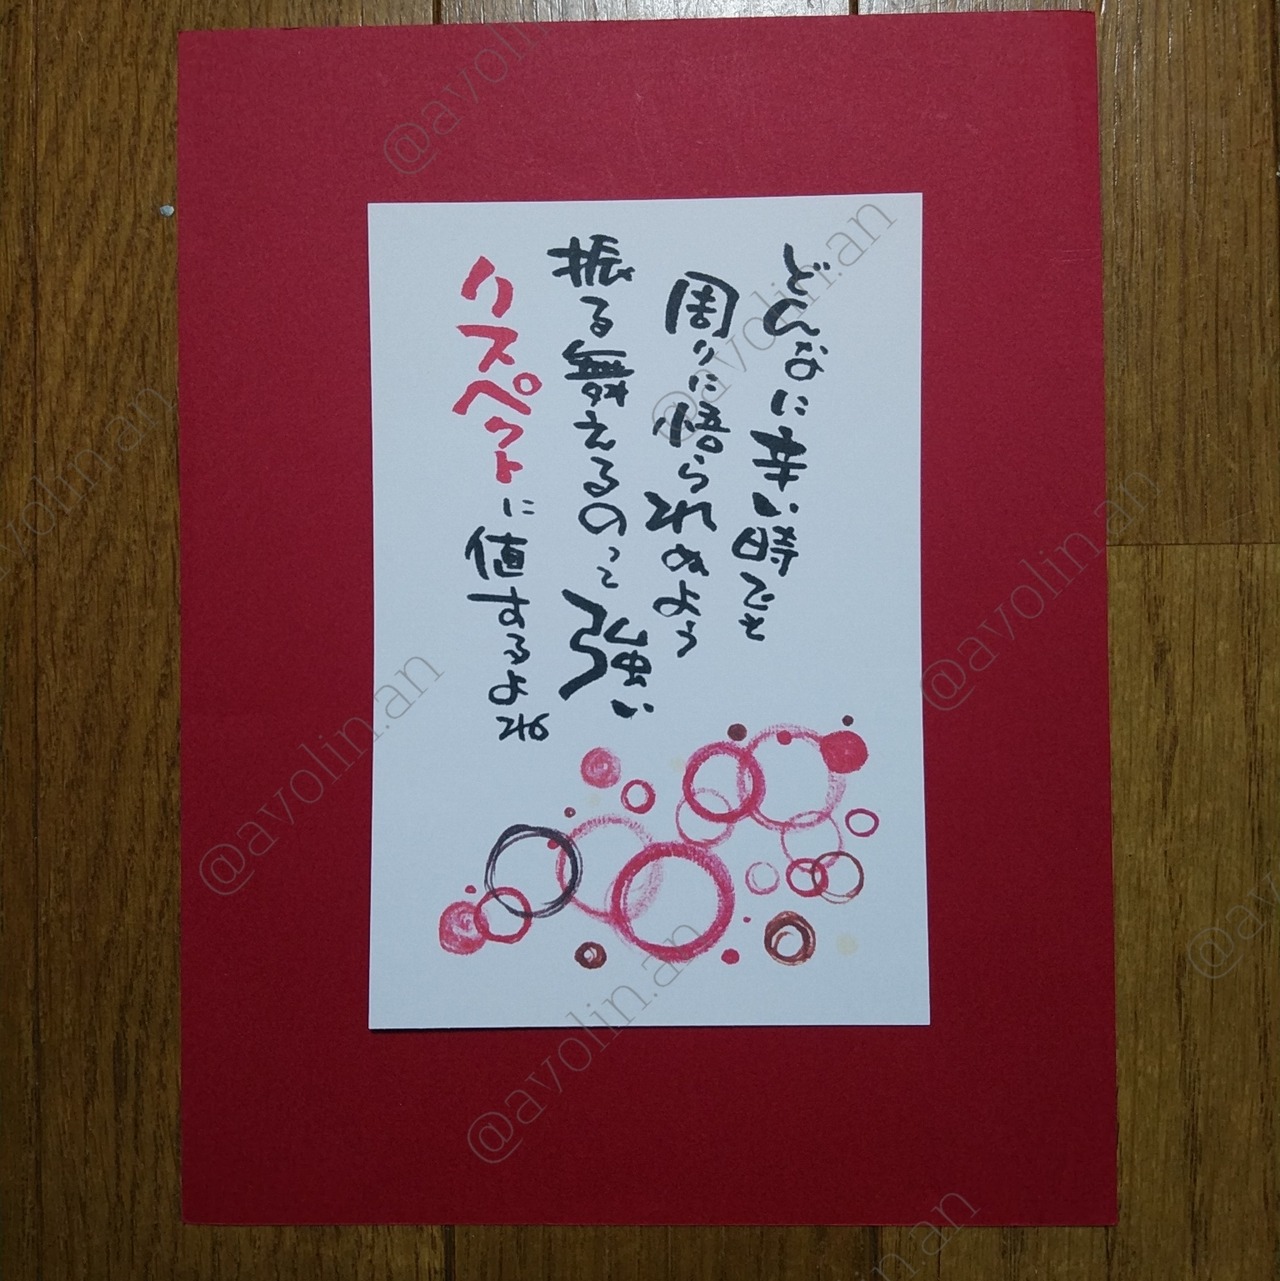 どんなに辛い時でも
周りに悟られぬよう
振る舞えるのって強い
リスペクトに値するよね
@avolin.an
@avolin.an
@avolin.an
@avolin.an
@avolin.an
@avolin.an
@avolin.an